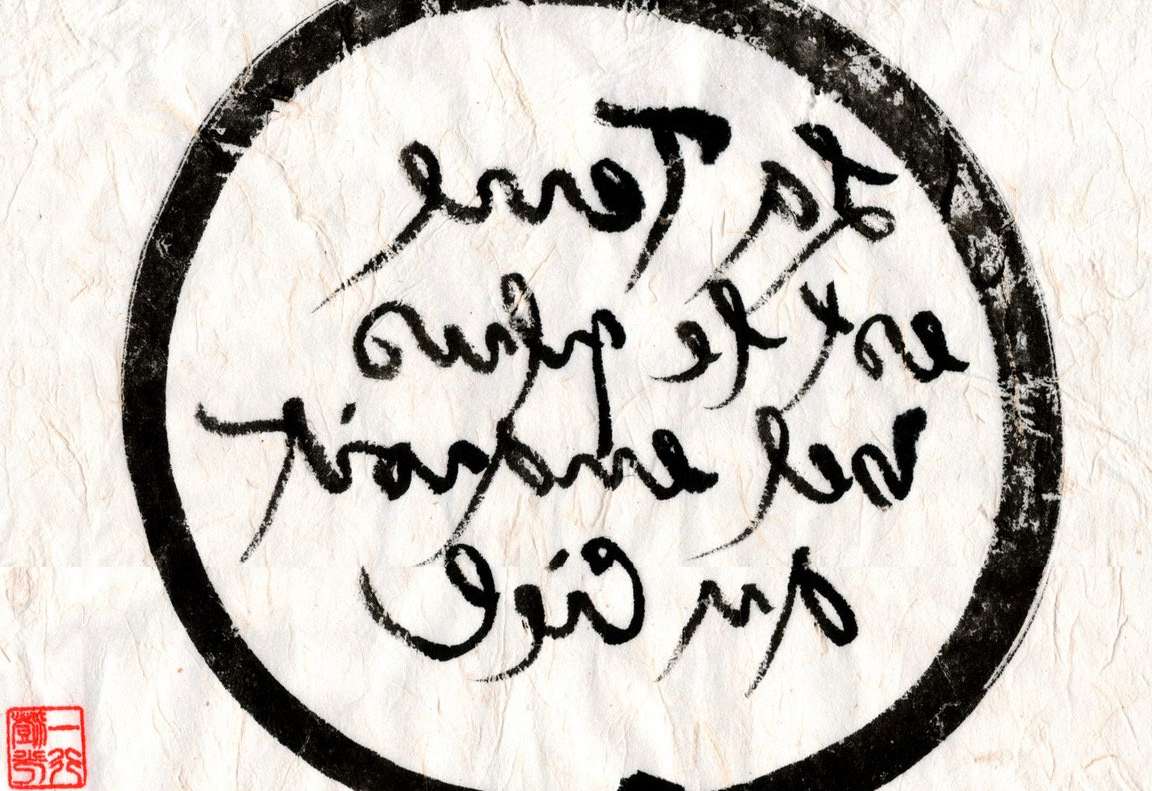 La Terre
est le plus
bel endroit
du Ciel